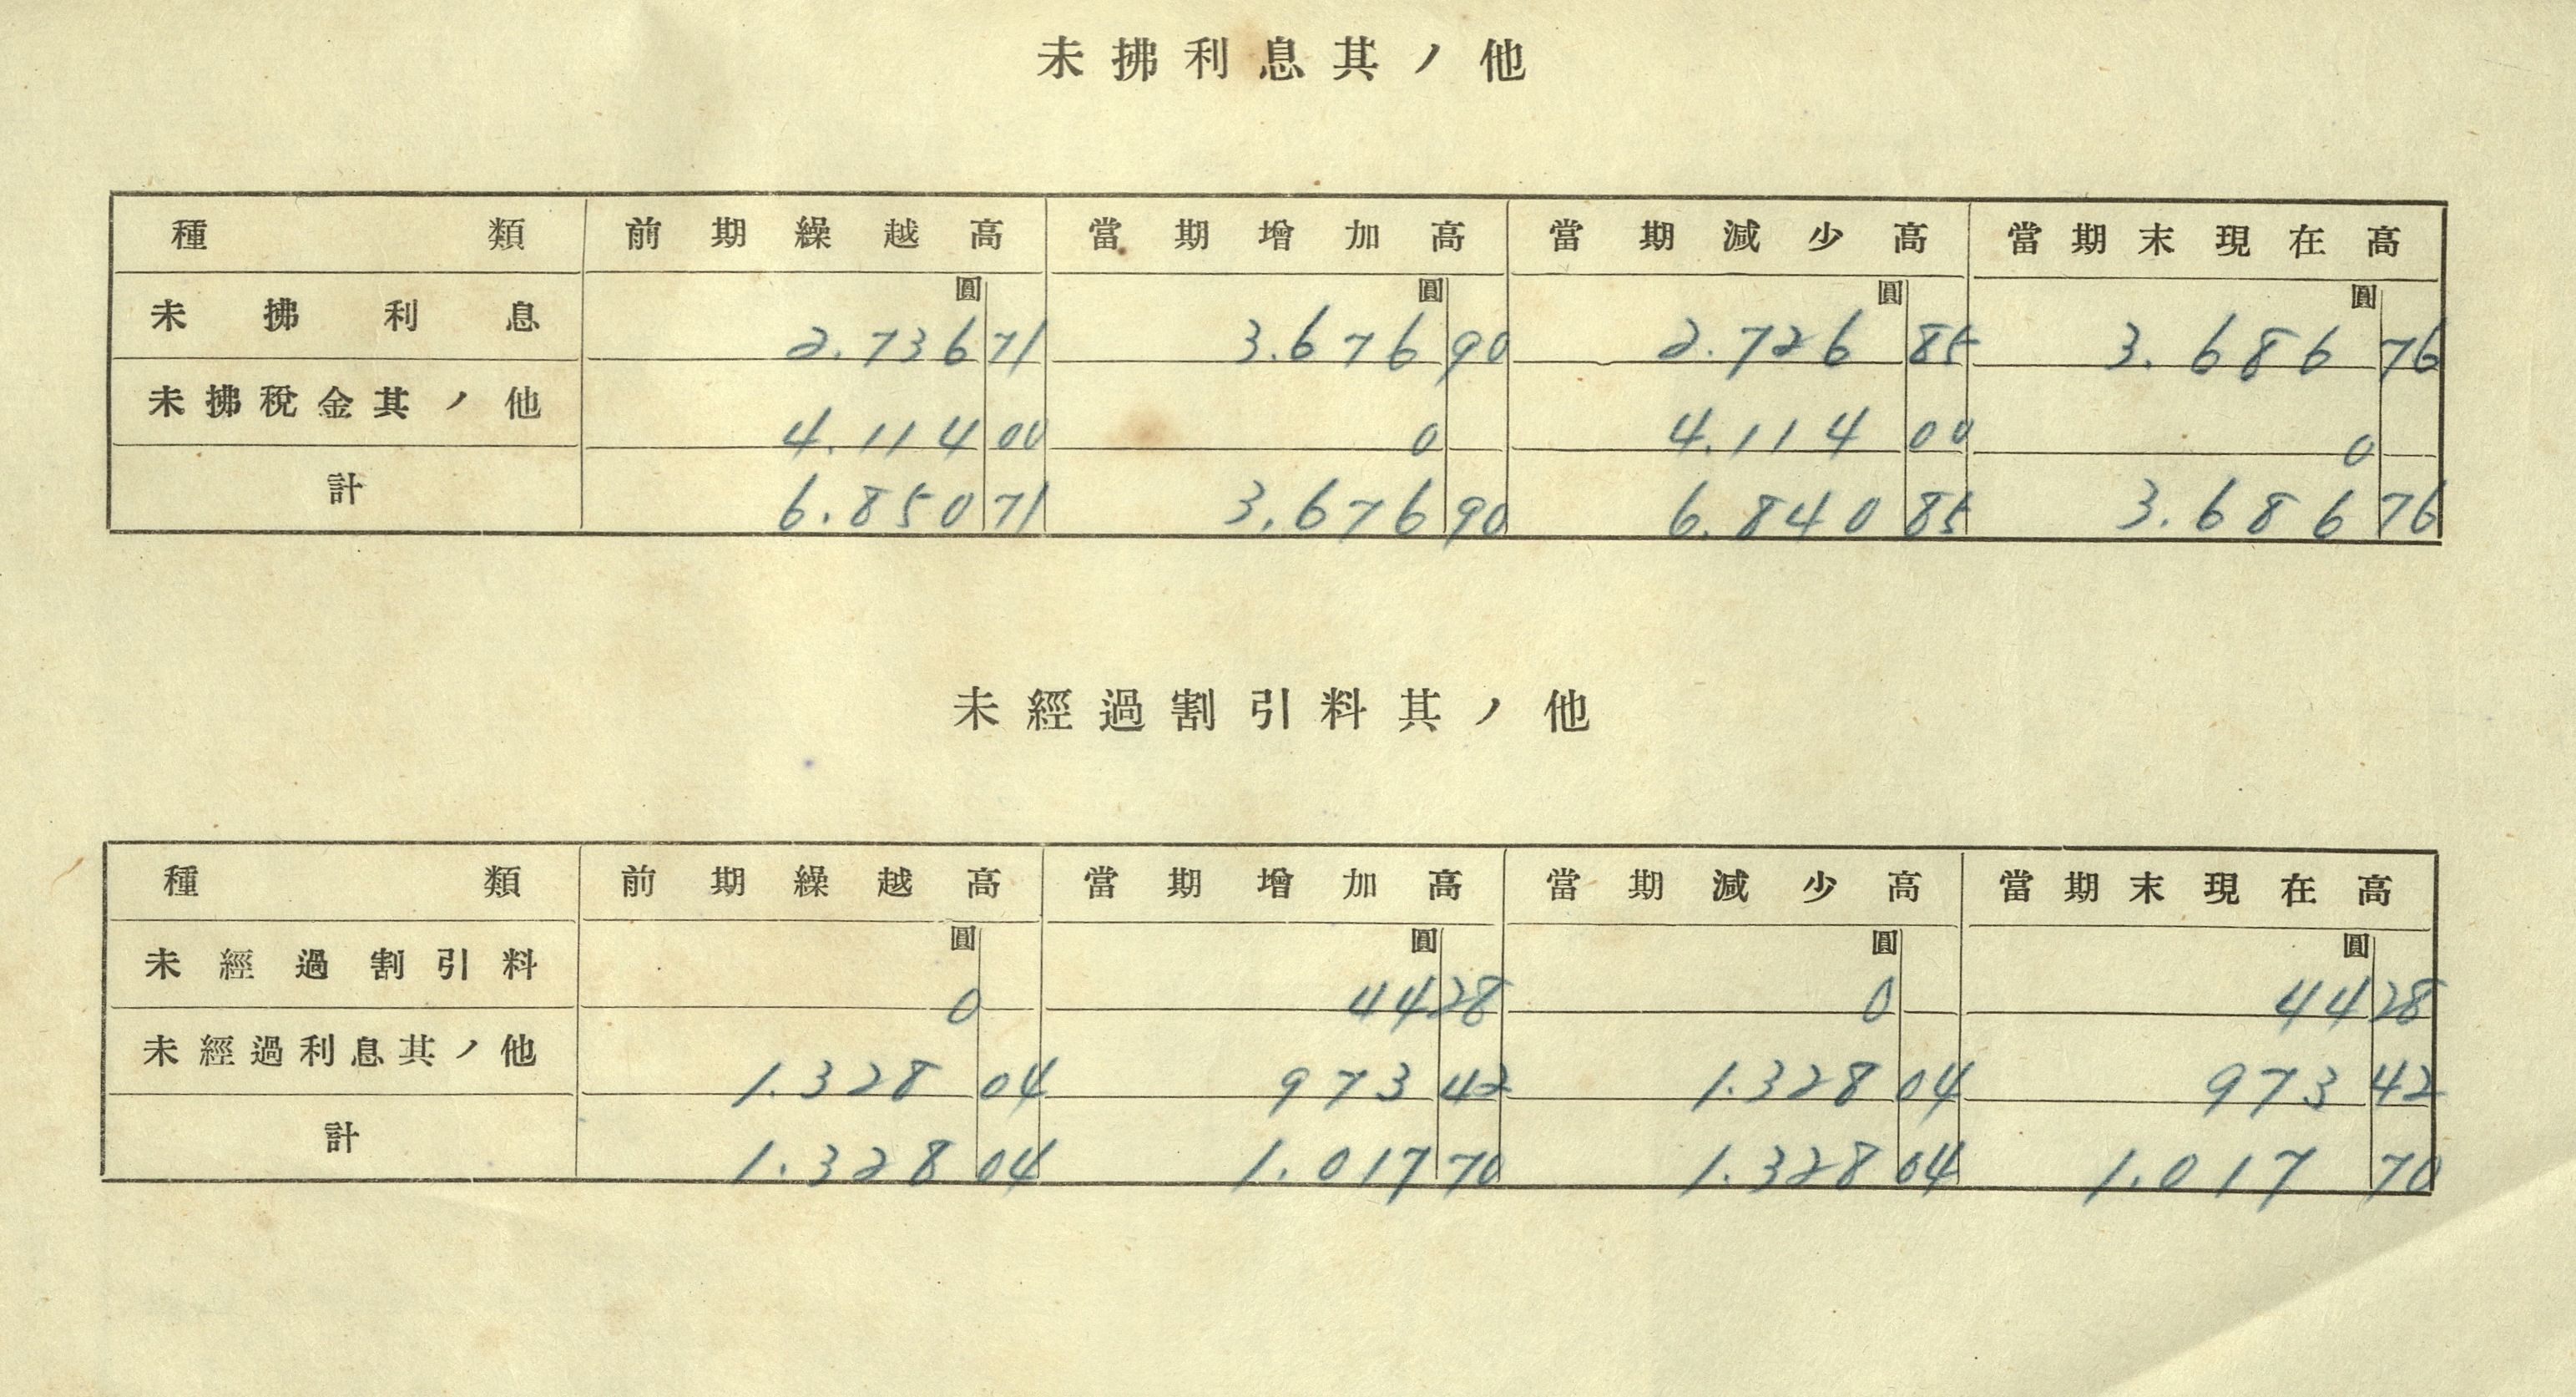 未拂利息其ノ他
種類 前期繰越高 當期增加高 當期減少高 當期末現在高
圓 圓 圓 圓
未拂利息 2.736 71 3.676 90 2.726 85 3.686 76
未拂稅金其ノ他 4.114 00 0 4.114 00 0
計 6.850 71 3.676 90 6.840 85 3.686 76
未經過割引料其ノ他
種類 前期繰越高 當期增加高 當期減少高 當期末現在高
圓 圓 圓 圓
未經過割引料 0 44 28 0 44 28
未經過利息其ノ他 1.328 04 973 42 1.328 04 973 42
計 1.328 04 1.017 70 1.328 04 1.017 70